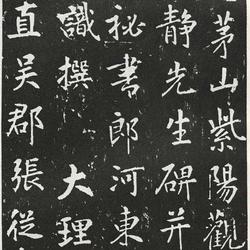 茅山紫陽觀
靜先生碑并
祕書郎河東
識撰　大理
直吳郡張從